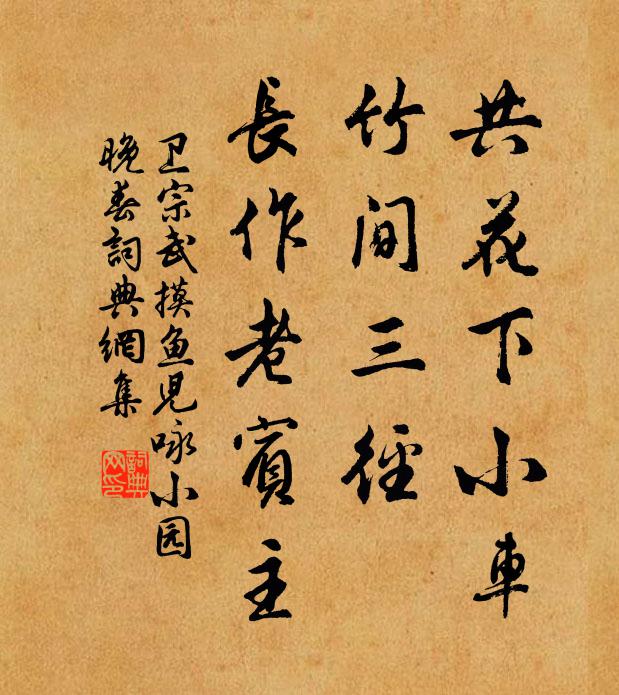 共花下小車
竹間三徑
長作老賓主
卫宗武摸鱼児咏小园
晚春詞典網集
詞典
网印